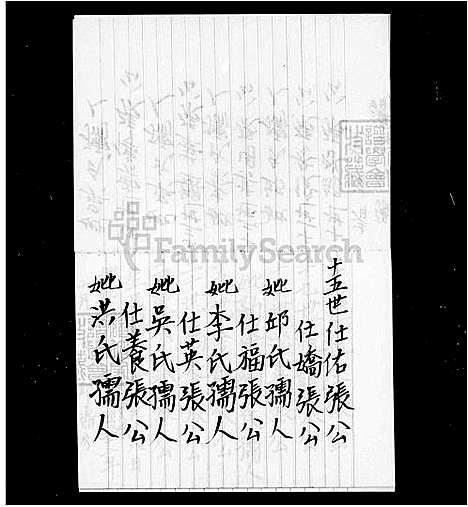 十五世仕佑張公
仕嬌張公
妣邱氏孺人
仕福張公
妣李氏孺人
仕英張公
妣吳氏孺人
仕養張公
妣洪氏孺人
FamilySearch